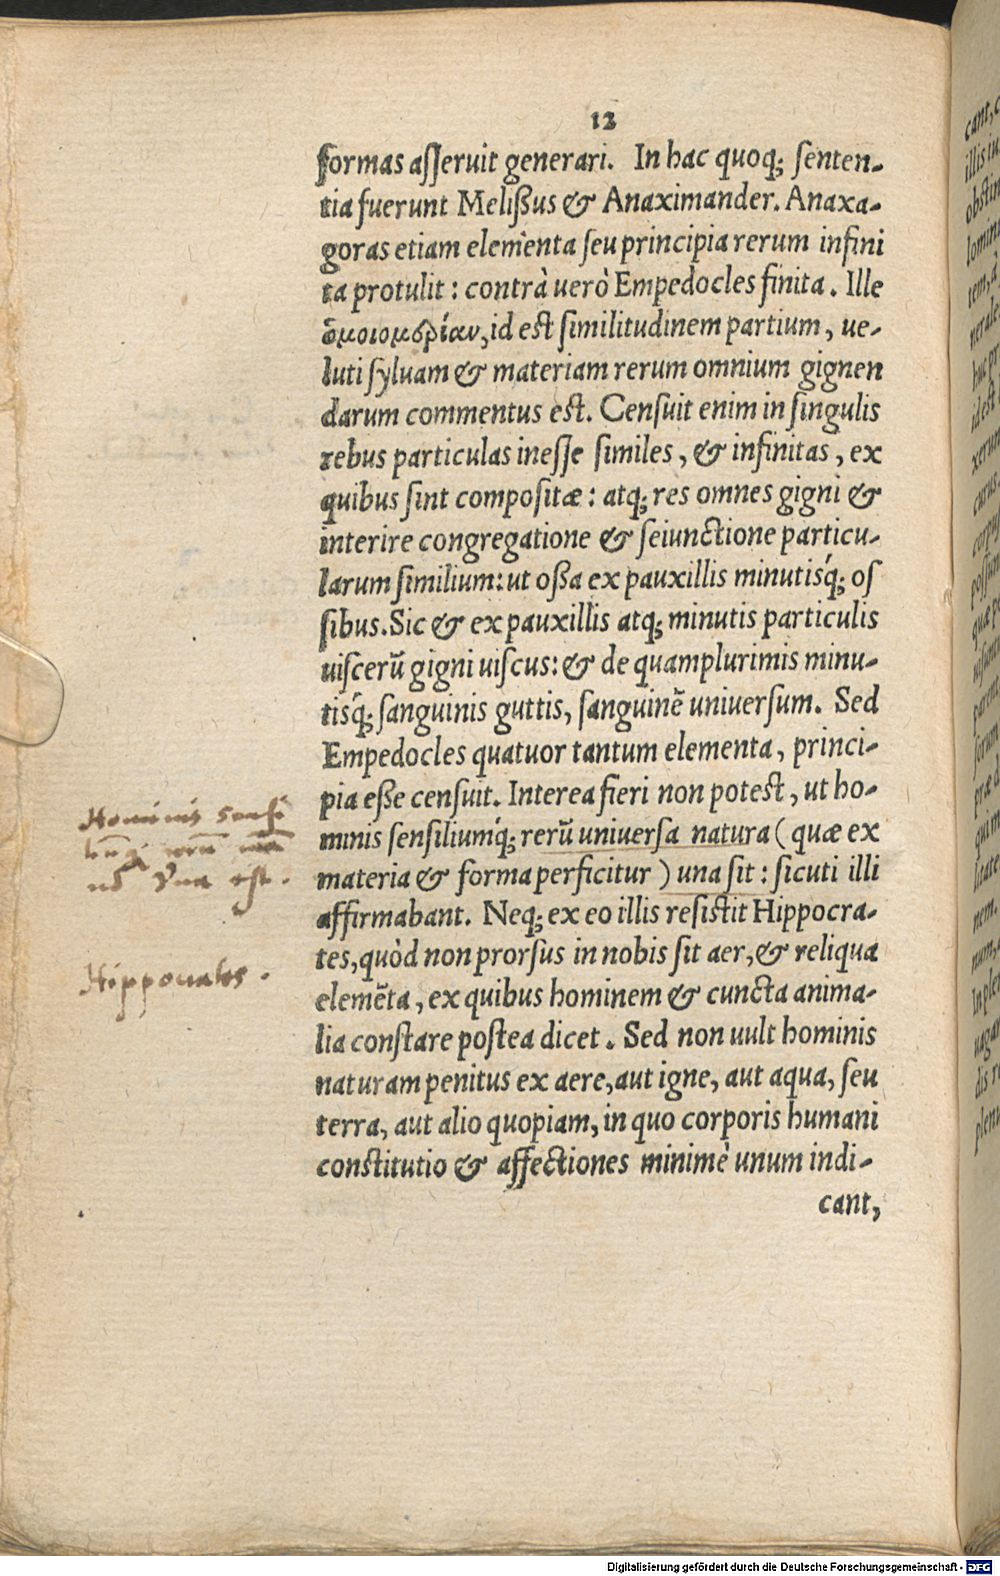 12
formas aſſeruit generari. In hac quoq; ſenten-
tia fuerunt Melißus & Anaximander. Anaxa-
goras etiam elementa ſeu principia rerum infini
ta protulit: contrà uerò Empedocles finita. Ille
ὁμοιομερίαν, id eſt ſimilitudinem partium, ue-
luti ſyluam & materiam rerum omnium gignen
darum commentus eſt. Cenſuit enim in ſingulis
rebus particulas ineſſe ſimiles, & infinitas, ex
quibus ſint compoſitæ: atq; res omnes gigni &
interire congregatione & ſeiunctione particu-
larum ſimilium: ut oßa ex pauxillis minutisq́; oſ
ſibus. Sic & ex pauxillis atq; minutis particulis
uiſcerũ gigni uiſcus: & de quamplurimis minu-
tisq́; ſanguinis guttis, ſanguinẽ uniuerſum. Sed
Empedocles quatuor tantum elementa, princi-
pia eße cenſuit. Interea fieri non poteſt, ut ho-
minis ſenſiliumq́; rerũ uniuerſa natura (quæ ex
materia & forma perficitur) una ſit: ſicuti illi
affirmabant. Neq; ex eo illis reſiſtit Hippocra-
tes, quòd non prorſus in nobis ſit aer, & reliqua
elemẽta, ex quibus hominem & cuncta anima-
lia conſtare poſtea dicet. Sed non uult hominis
naturam penitus ex aere, aut igne, aut aqua, ſeu
terra, aut alio quopiam, in quo corporis humani
conſtitutio & affectiones minimè unum indi-
cant,
Hominis sensi
liũq; rerũ
nõ vna est.
Hippocrates.
cant, c
Digitalisierung gefördert durch die Deutsche Forschungsgemeinschaft - DFG